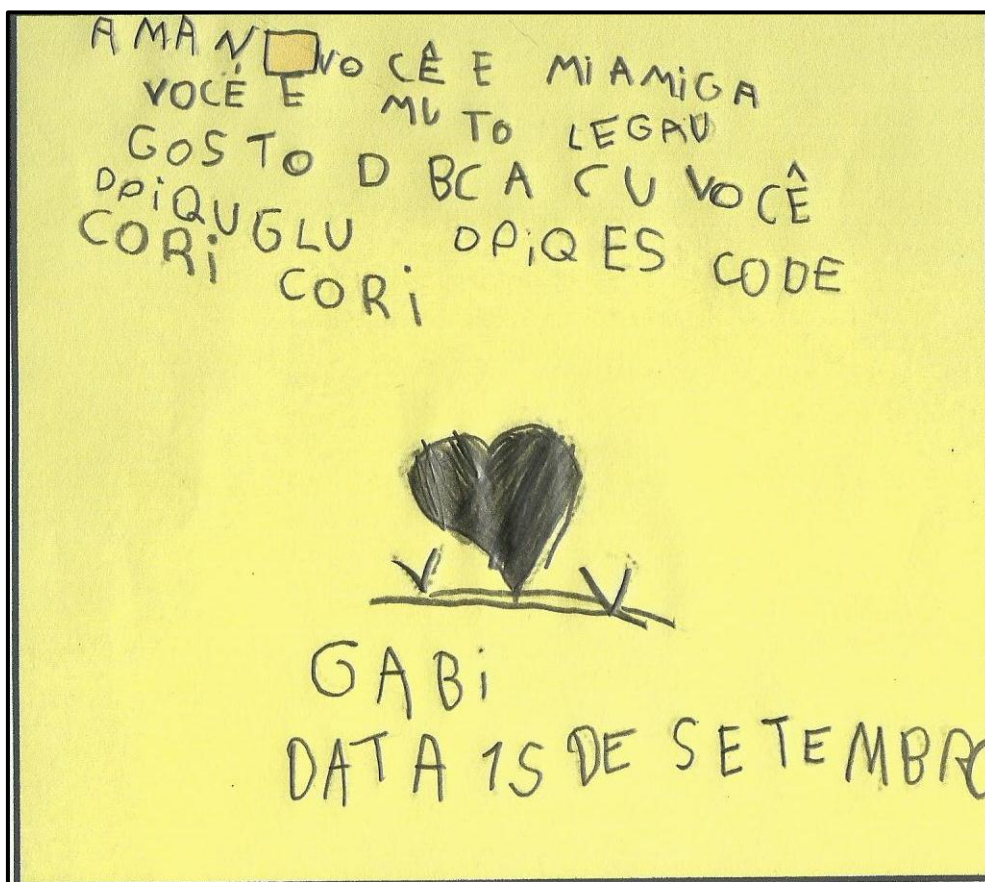 AMAN VOCÊ E MiAMiGA
VOCÉ E MUTO LEGAU
GOSTO D BCA CU VOCÊ
DPiQUGLU DPiQES CODE
CORi CORi
GABi
DATA 15 DE SETEMBRO